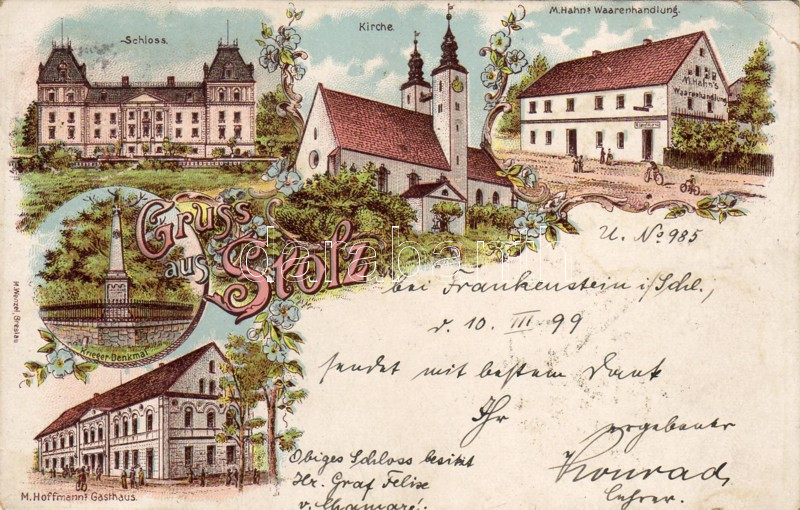 Schloss.
Kirche.
M. Hahn's Waarenhandlung.
M. Hahn's
Waarenhandlung
Gruss
aus
Stolz
darabanth
Krieger-Denkmal
M. Hoffmann's Gasthaus.
U. No 985
bei Frankenstein i/Schl.,
d. 10. III. 99
sendet mit bestem Dank
Ihr
ergebener
Konrad,
Lehrer.
Obiges Schloss besitzt
Hr. Graf Felix
v. Chamaré.